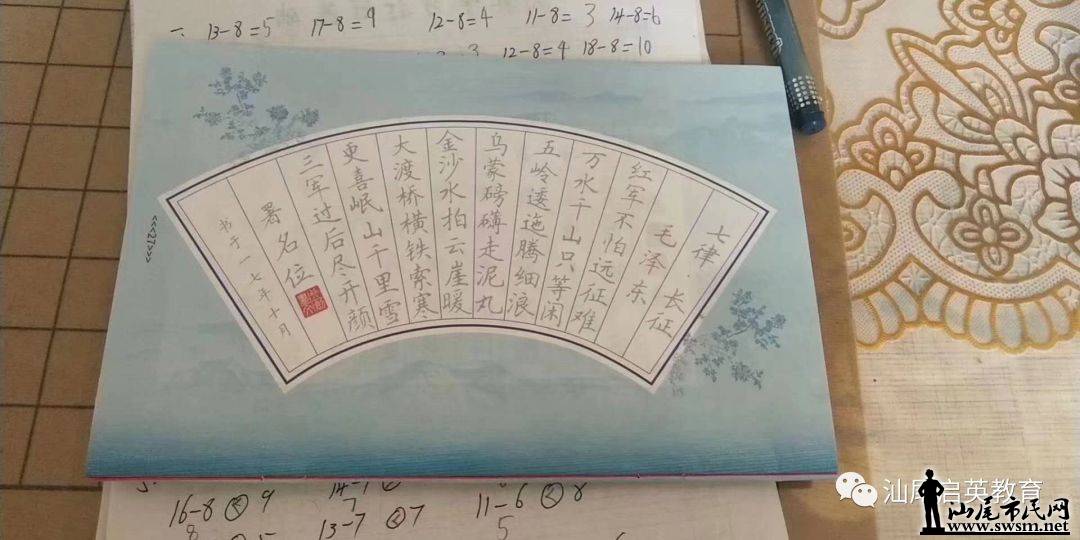 一、 13-8=5 17-8=9 12-8=4 11-8=3 14-8=6
3 12-8=4 18-8=10
七律 长征
毛泽东
红军不怕远征难
万水千山只等闲
五岭逶迤腾细浪
乌蒙磅礴走泥丸
金沙水拍云崖暖
大渡桥横铁索寒
更喜岷山千里雪
三军过后尽开颜
署名位
书于一七年十月
<<<27>>>
16-8 < 9
8
13-7 < 7
11-6 < 8
5
汕尾启英教育
汕尾市民网
www.swsm.net